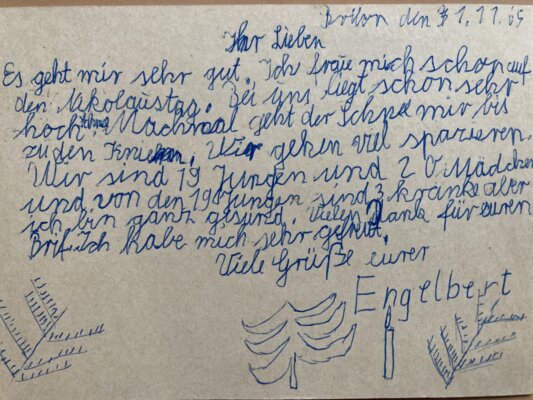 Brilon den 1.11.65
Ihr Lieben
Es geht mir sehr gut. Ich fraue mich schon auf
den Nikolaustag. Bei uns liegt schon sehr
hoch Schnee Machmal geht der Schnee mir bis
zu den Knien. Wir gehen viel spazieren.
Wir sind 19 Jungen und 20 Mädchen
und von den 19 Jungen sind 3 kranke aber
ich bin ganz gesund. Vielen Dank für euren
Brif ich habe mich sehr gefreut.
Viele Grüße eurer
Engelbert